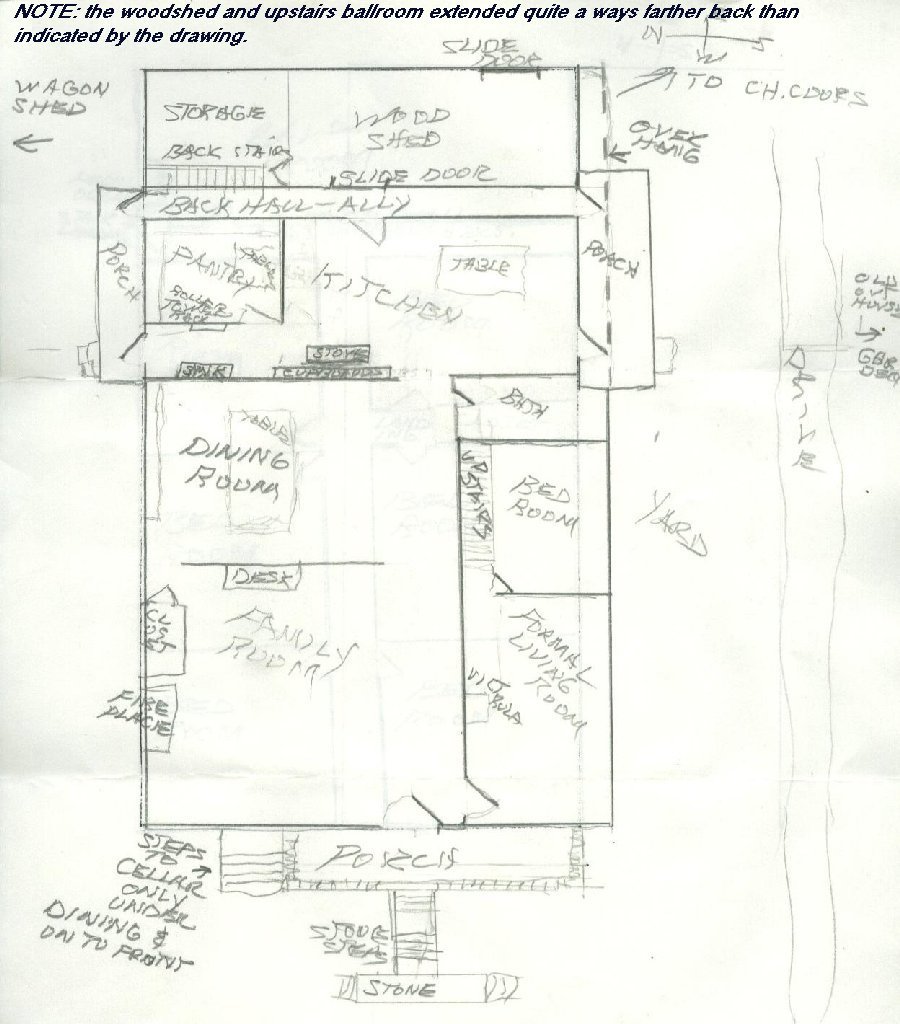 NOTE: the woodshed and upstairs ballroom extended quite a ways farther back than
indicated by the drawing.
SLIDE
DOOR
N
S
W
WAGON
SHED
TO CH.CDORS
STORAGE
WOOD
SHED
OVER
HANG
BACK STAIRS
SLIDE DOOR
BACK HALL-ALLY
PORCH
PANTRY
TABLE
KITCHEN
TABLE
PORCH
OLD
OUT
HOUSE
ROLLER
STOVE
SINK
CUPBOARDS
BATH
DRIVE
TABLE
DINING
ROOM
UPSTAIRS
BED
ROOM
YARD
DESK
CLOSET
FAMILY
ROOM
FORMAL
LIVING
ROOM
VICTROLA
FIRE
PLACE
STEPS
TO
CELLAR
ONLY
UNDER
DINING &
ON TO FRONT
PORCH
STONE
STEPS
STONE